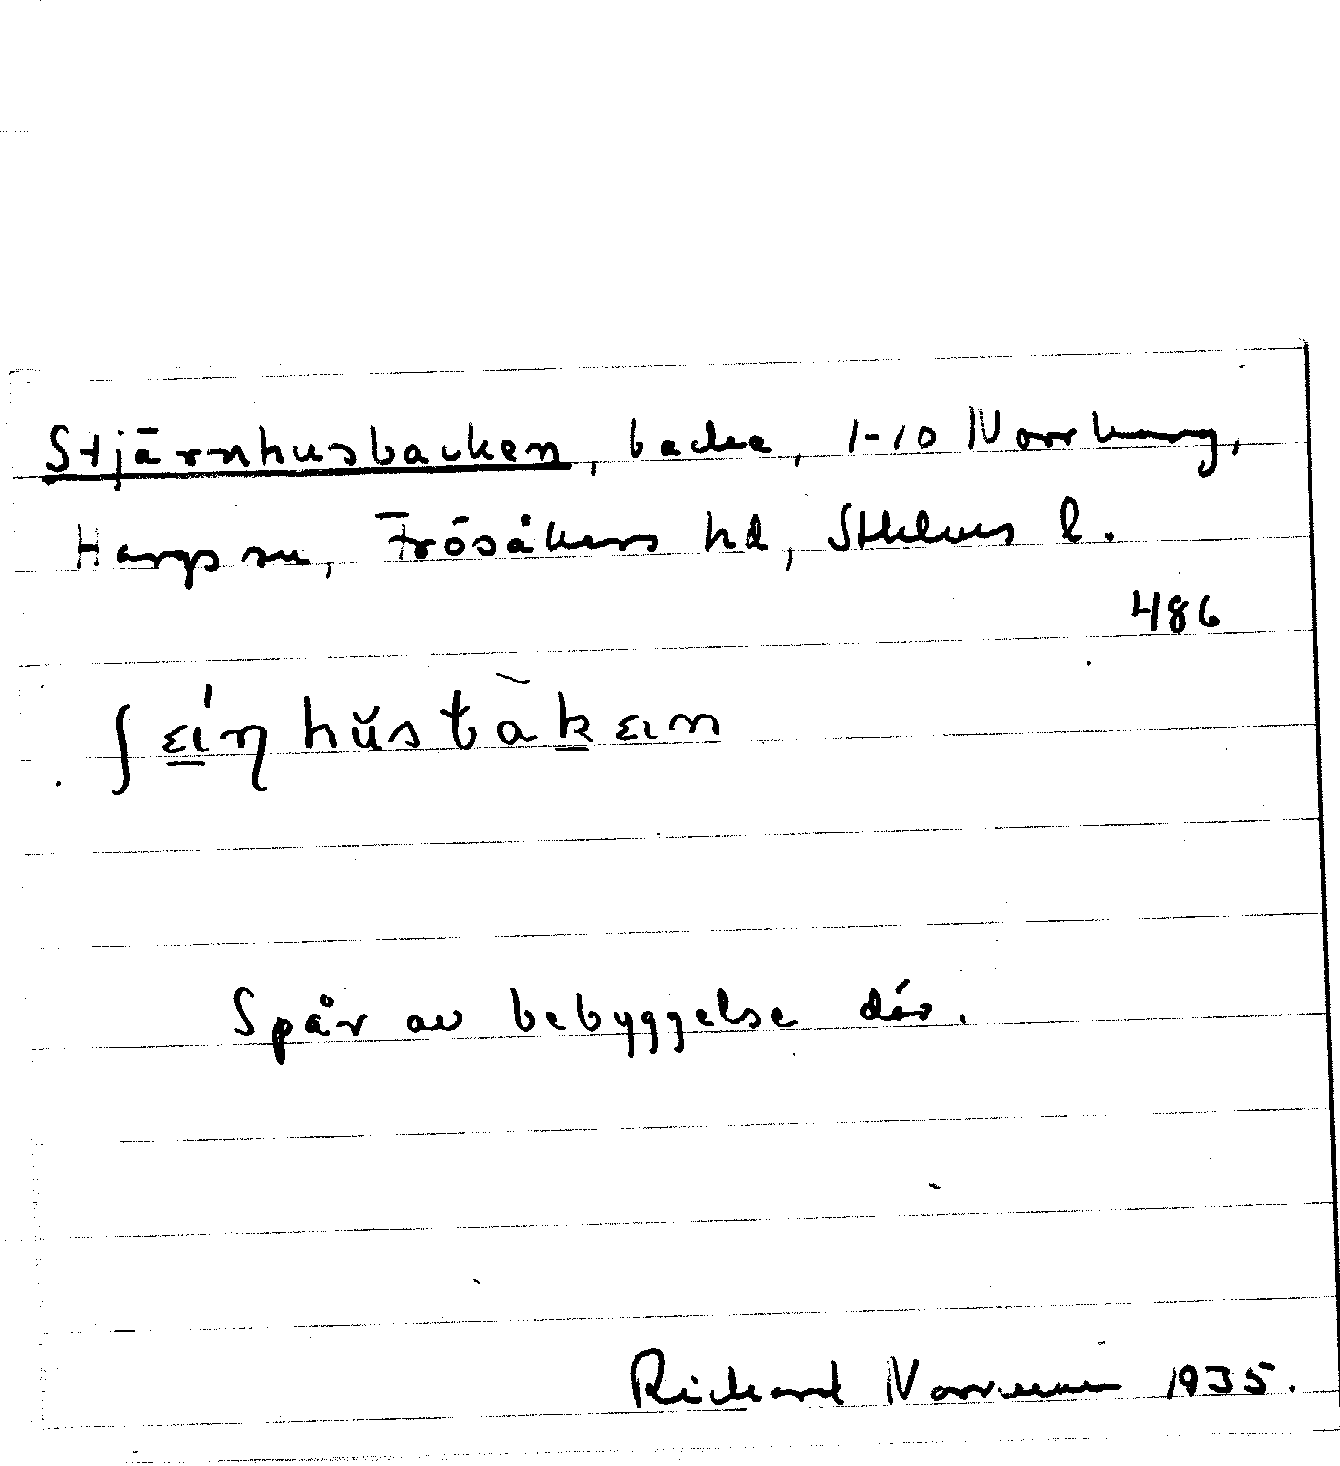 Stjärnhusbacken, backe, 1-10 Norrhavng,
Hargs sn, Frösåkers hd, Sthlms l.
486
Spår av bebyggelse där.
Richard Norrman 1935.